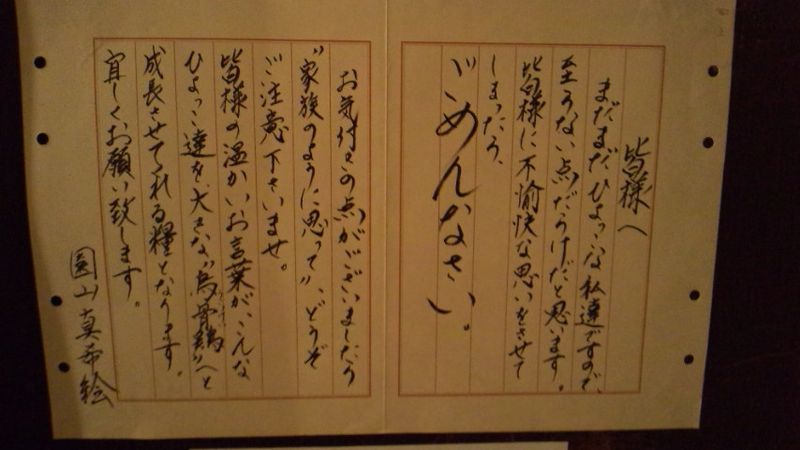 皆様へ
まだまだひよっこな私達ですので、
至らない点だらけだと思います。
皆様に不愉快な思いをさせて
しまったら、
ごめんなさい。
お気付きの点がございましたら
“家族のように思って”、どうぞ
ご注意下さいませ。
皆様の温かいお言葉が、こんな
ひよっこ達を、大きな“烏骨鶏”へと
成長させてくれる糧となります。
宜しくお願い致します。
園山真希絵